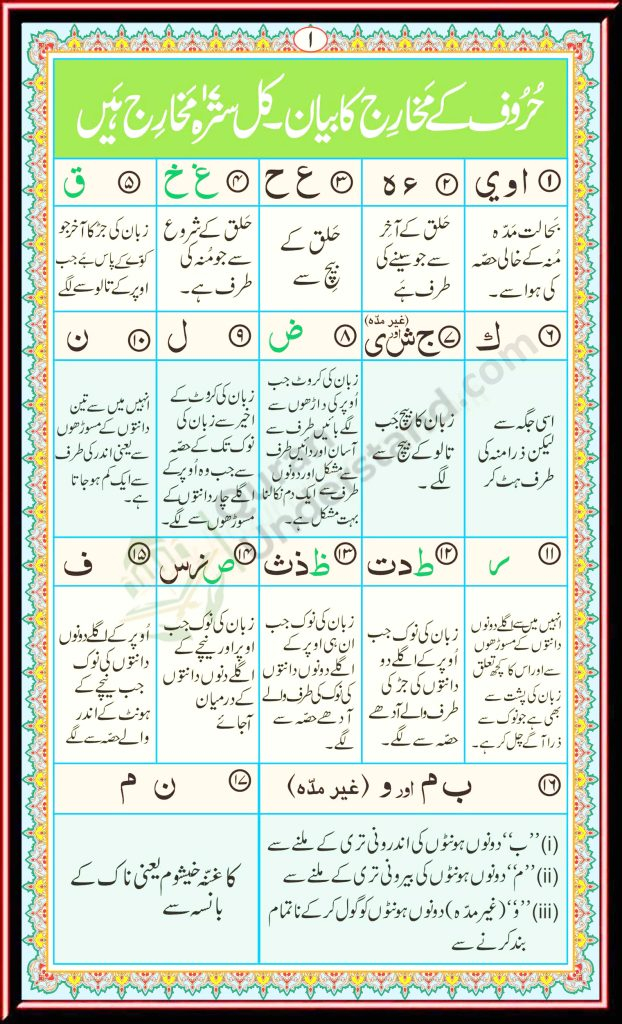 ۱
حُرُوف کے مَخارِج کا بیان۔ کل سترہ ۱۷ مَخارِج ہَیں
۱ ا و ي
۲ ء ہ
۳ ع ح
۴ غ خ
۵ ق
بحالت مَدّہ
مُنہ کے خالی حصّہ
کی ہوا سے۔
حَلق کے آخر
سے جو سینے کی
طرف ہَے
حَلق کے
بیچ سے
حَلق کے شروع
سے جو مُنہ کی
طرف ہے۔
زبان کی جڑ کا آخر جو
کوّے کے پاس ہَے جب
اوپر کے تالو سے لگے
۶ ك
۷ ج ش اور ی (غیر مدّہ)
۸ ض
۹ ل
۱۰ ن
اسی جگہ سے
لیکن ذرا منہ کی
طرف ہٹ کر
زبان کا بیچ جَب
تالو کے بیچ سے
لگے۔
زبان کی کروٹ جب
اُوپر کی داڑھوں سے
لگے بائیں طرف سے
آسان اور دائیں طرف
سے مشکل اور دونوں
طرف سے ایک دم نکالنا
بہت مشکل ہے۔
زبان کی کروٹ کے
اخیر سے زبان کی
نوک تک کے حصّہ
سے جب وہ اُوپر کے
اگلے چار دانتوں کے
مسوڑھوں سے لگے۔
انہیں میں سے تین
دانتوں کے مسوڑھوں
سے یعنی اندر کی طرف
سے ایک کم ہو جاتا
ہے۔
۱۱ ر
۱۲ ط د ت
۱۳ ظ ذ ث
۱۴ ص ز س
۱۵ ف
انہیں میں سے اگلے دونوں
دانتوں کے مسوڑھوں
سے اور اس کا کچھ تعلق
زبان کی پشت سے
بھی ہے جو نوک سے
ذرا آگے چل کر ہے۔
زبان کی نوک جب
اُوپر کے اگلے دو
دانتوں کی جڑ کی
طرف والے آدھے
حصّہ سے لگے۔
زبان کی نوک جب
ان ہی اوپر کے
اگلے دونوں دانتوں
کی نوک کی طرف والے
آدھے حصّہ سے
لگے۔
زبان کی نوک جب
اوپر اور نیچے کے
اگلے دونوں دانتوں
کے درمیان
آجائے
اُوپر کے اگلے دونوں
دانتوں کی نوک
جب نیچے کے
ہونٹ کے اندر
والے حصّہ سے لگے
۱۶ ب م اور و (غیر مدّہ)
۱۷ ن م
(i) ”ب“ دونوں ہونٹوں کی اندرونی تری کے ملنے سے
(ii) ”م“ دونوں ہونٹوں کی بیرونی تری کے ملنے سے
(iii) ”وَ“ (غیر مدّہ) دونوں ہونٹوں کو گول کر کے ناتمام
بند کرنے سے
کا غنّہ خیشوم یعنی ناک کے
بانسہ سے
Quran
Understand.com